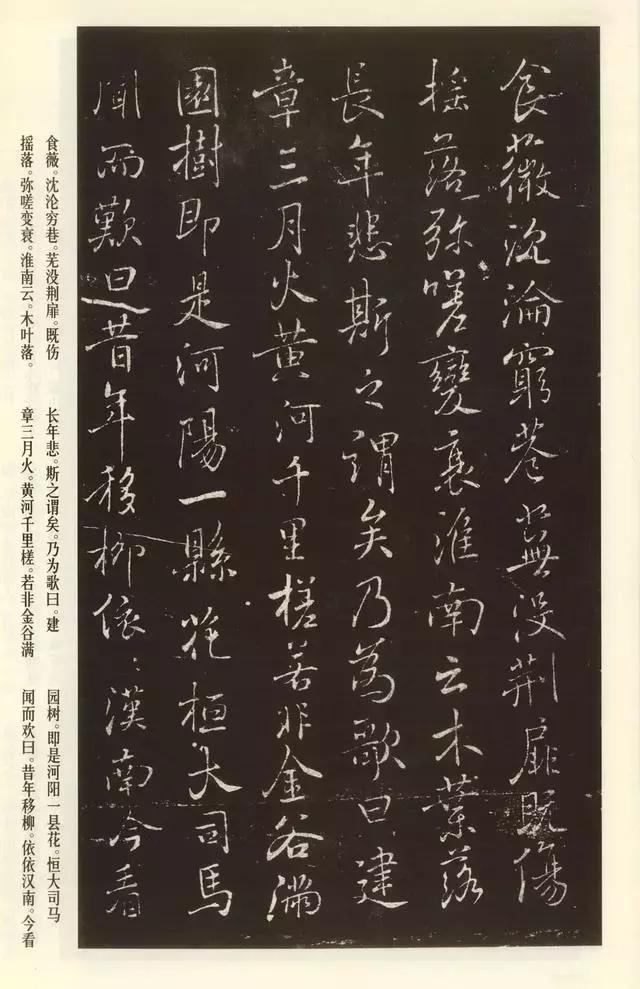 食薇沈淪窮巷蕪没荆扉既傷
摇落弥嗟變衰淮南云木葉落
長年悲斯之謂矣乃為歌曰建
章三月火黄河千里槎若非金谷滿
園樹即是河陽一縣花桓大司馬
聞而歎曰昔年移柳依〻漢南今看
食薇。沈沦穷巷。芜没荆扉。既伤
摇落。弥嗟变衰。淮南云。木叶落。
长年悲。斯之谓矣。乃为歌曰。建
章三月火。黄河千里槎。若非金谷满
园树。即是河阳一县花。恒大司马
闻而欢曰。昔年移柳。依依汉南。今看